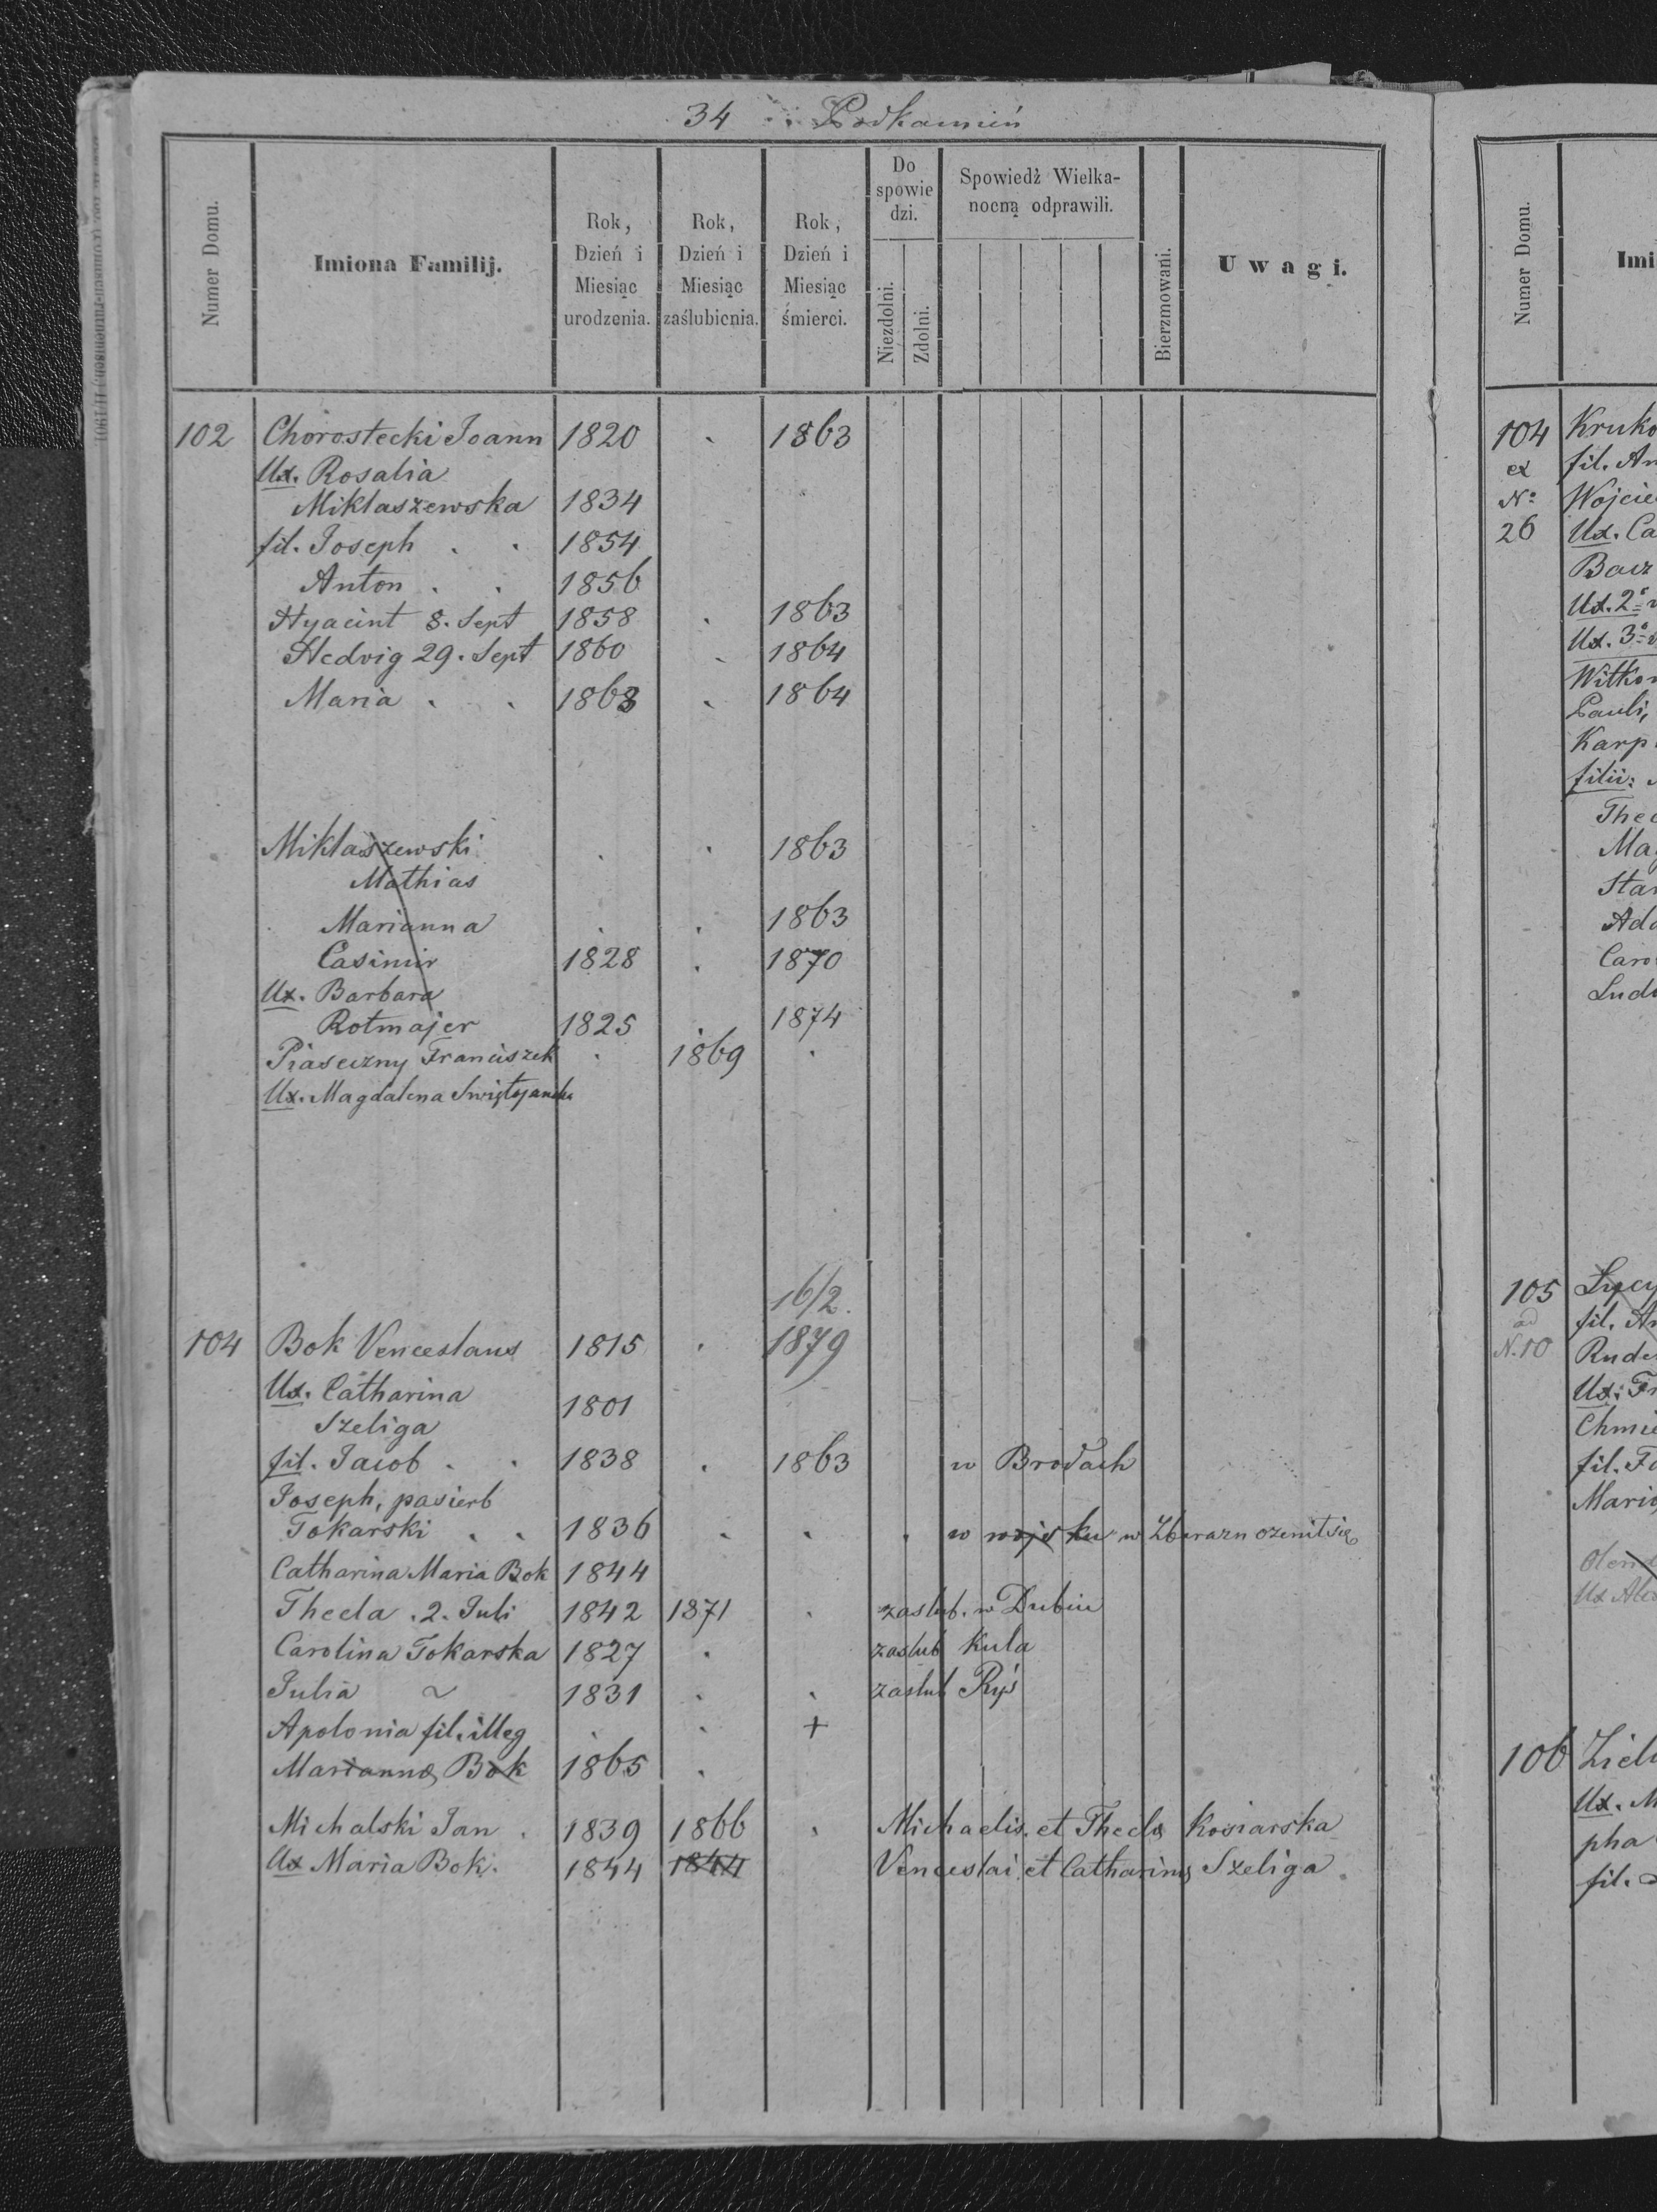 34 Podkamień
Numer Domu.
Imiona Familij.
Rok, Dzień i Miesiąc urodzenia.
Rok, Dzień i Miesiąc zaślubienia.
Rok, Dzień i Miesiąc śmierci.
Do spowie dzi.
Niezdolni.
Zdolni.
Spowiedź Wielka-
nocną odprawili.
Bierzmowani.
Uwagi.
102 Chorostecki Joann 1820 1863
Ux. Rosalia
Miklaszewska 1834
fil. Joseph 1854
Anton 1856
Hyacint 8. Sept 1858 1863
Hedvig 29. Sept 1860 1864
Maria 1863 1864
Miklaszewski 1863
Mathias
Marianna 1863
Casimir 1828 1870
Ux. Barbara
Rotmajer 1825 1874
Piaseczny Franciszek 1869
Ux. Magdalena
16/2.
104 Bok Venceslaus 1815 1879
Ux. Catharina
Szeliga 1801
fil. Jacob 1838 1863 w Brodach
Joseph, pasierb
Tokarski 1836 w wojsku w Zbarażu ożenił się
Catharina Maria Bok 1844
Thecla 2. Juli 1842 1871 zaslub. w Dubiu
Carolina Tokarska 1827 zaslub Kula
Julia ~ 1831 zaslub Ryś
Apolonia fil. illeg +
Mariannæ Bok 1865
Michalski Jan 1839 1866 Michaelis et Theclæ Kosiarska
Ux Maria Bok. 1844 1844 Venceslai et Catharinæ Szeliga
Numer Domu.
Imi
104 Kruko
ex fil. An
No Wojcie
26 Ux. Ca
Ux. 2
Ux. 3
Witko
Pauli,
Karp
filii:
Thec
Ma
Star
Ado
Caro
Ludo
105
ad fil. An
N. 10 Rude
Ux: Fr
Chmie
fil. Fr
Maria
106 Ziel
Ux. M
pha
fil.